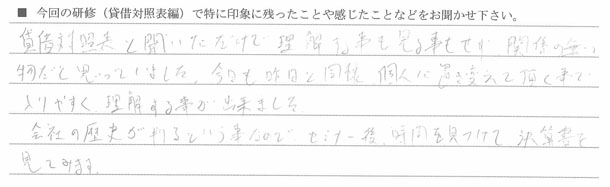 ■ 今回の研修（貸借対照表編）で特に印象に残ったことや感じたことなどをお聞かせ下さい。
貸借対照表と聞いただけで理解する事も見る事もせず、関係の無い
物だと思っていました。今日も昨日と同様、個人に置き変えて頂く事で
よりやすく、理解する事が出来ました。
会社の歴史が判るという事なので、セミナー後、時間を見つけて決算書を
見てみます。